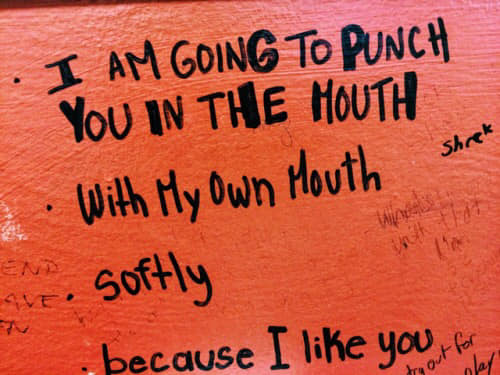 · I AM GOING TO PUNCH
YOU IN THE MOUTH
shrek
· With My Own Mouth
END
· Softly
· because I like you
try out for
play